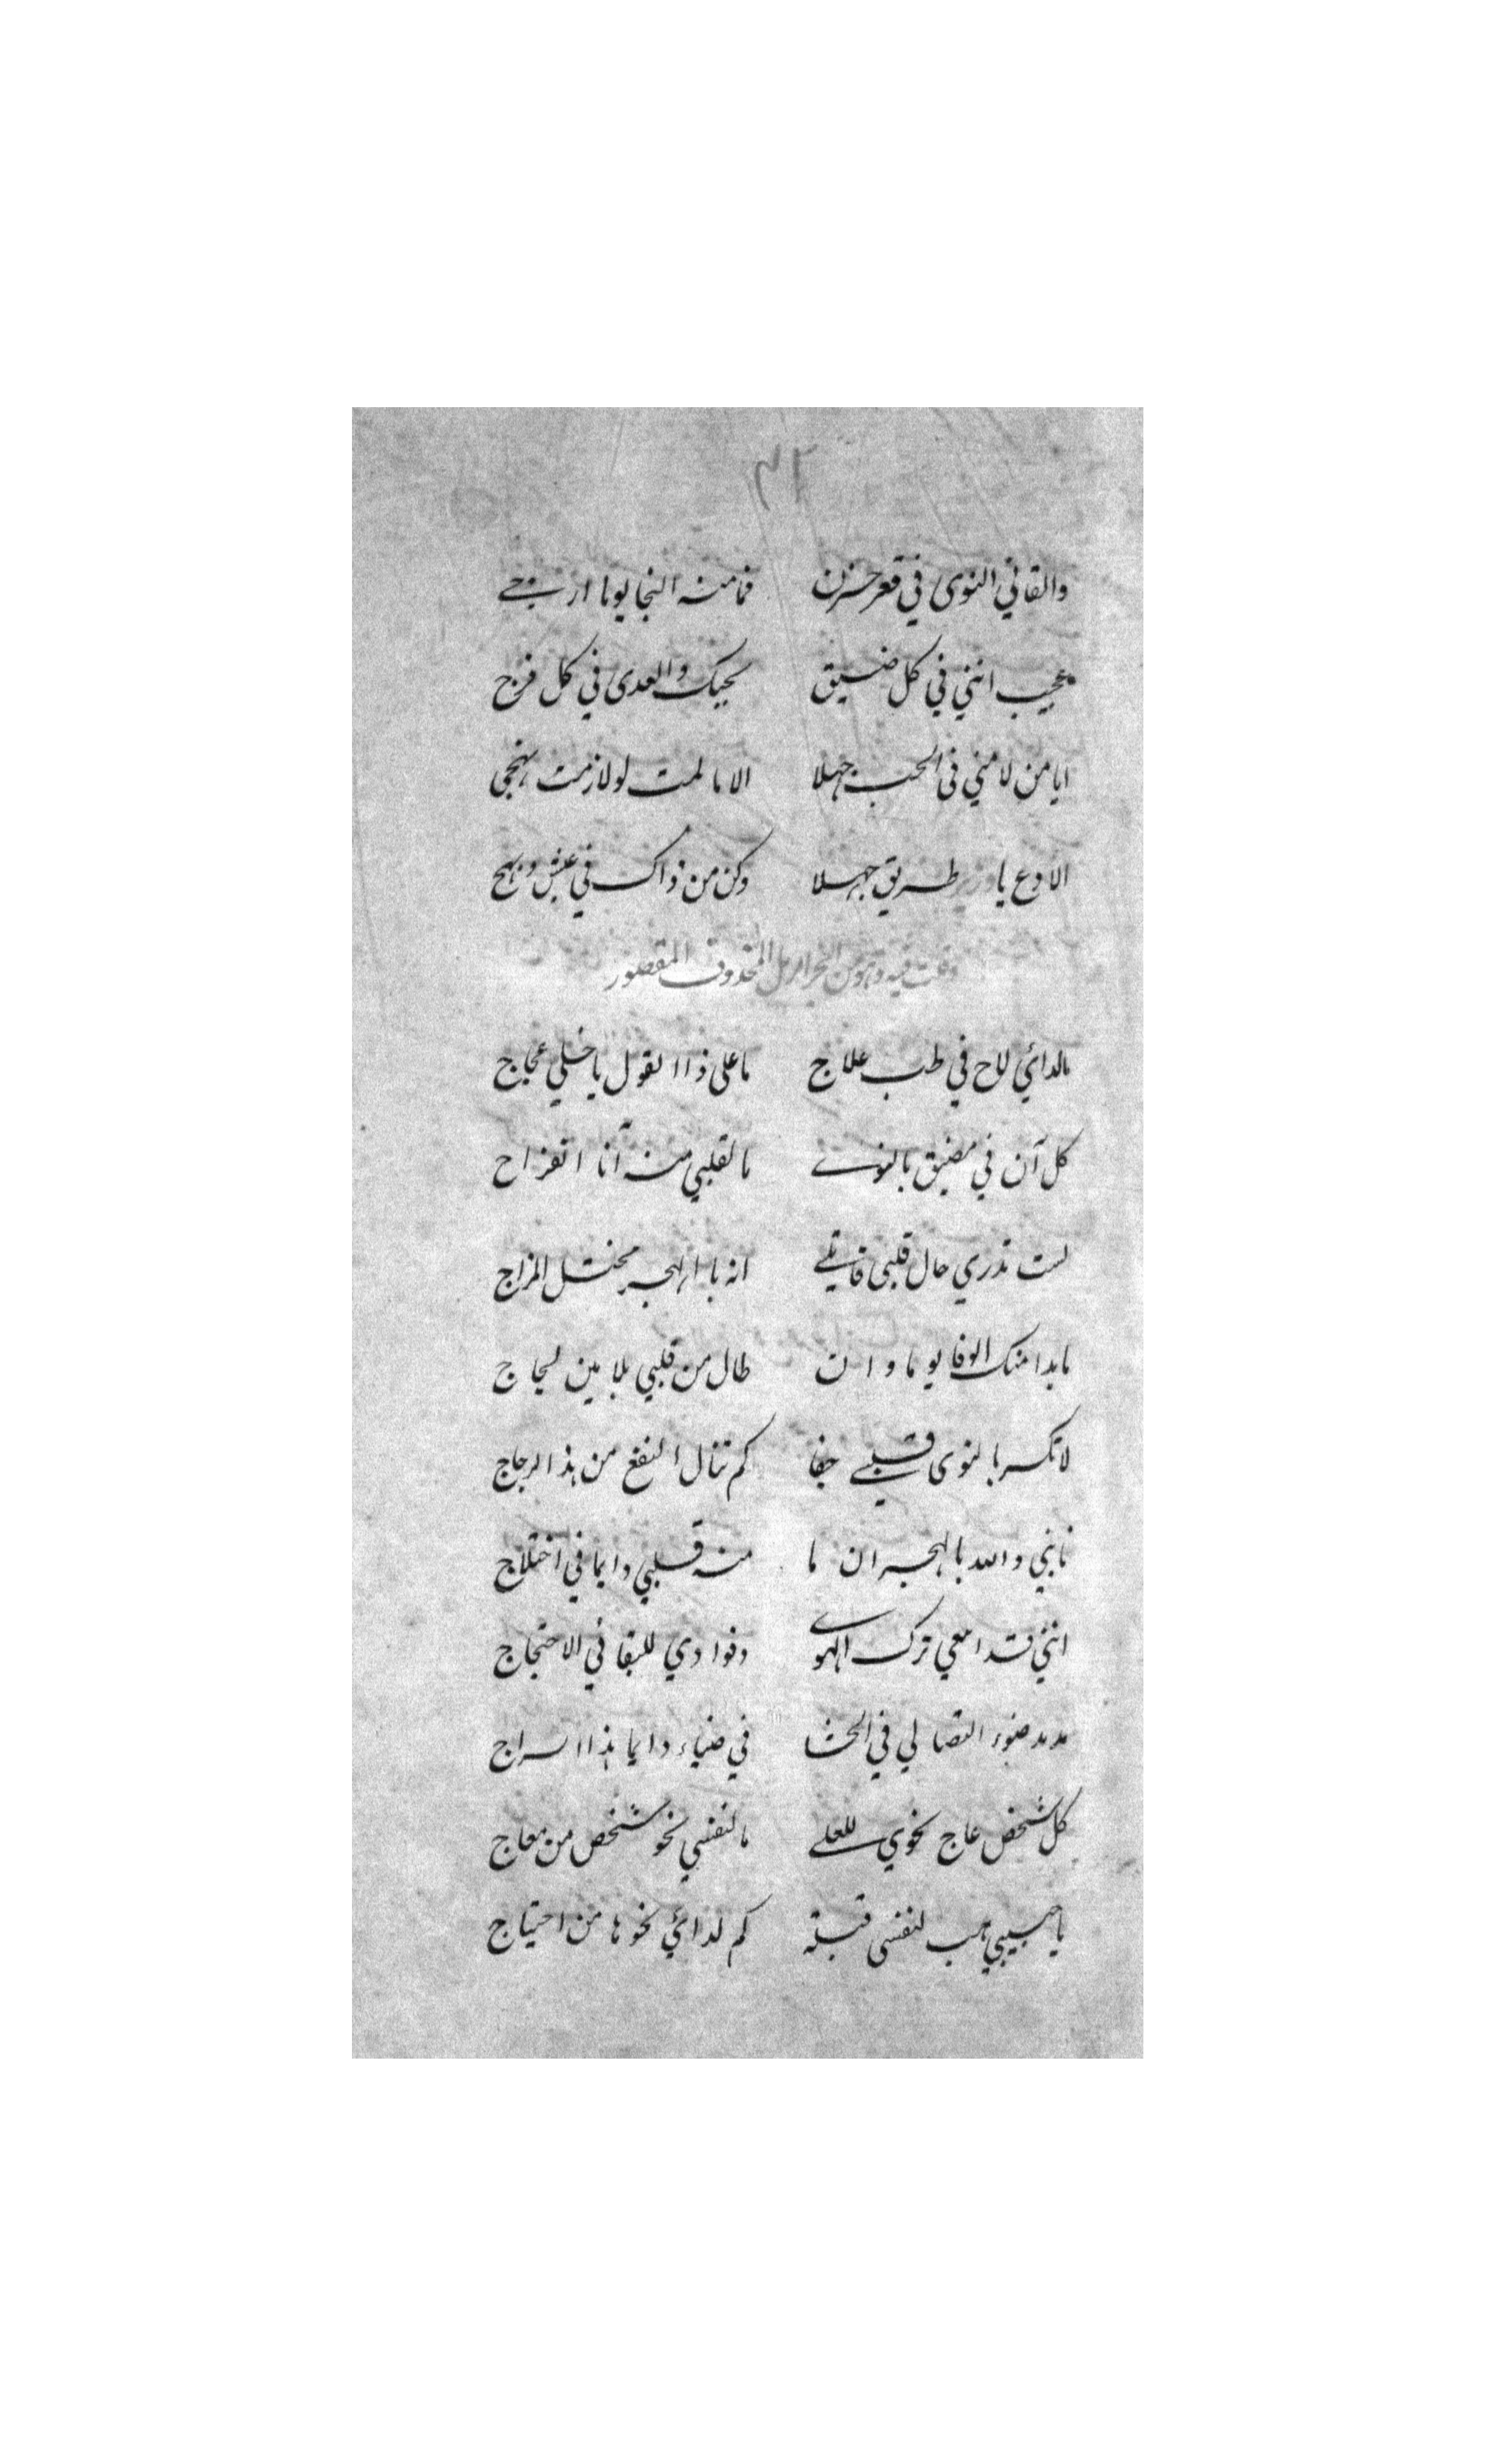 ٣٢
والقاني النوى في قعر حزن فما منه النجا يوما ارتجي
عجيب انني في كل ضيق بحبك والعدى في كل فرج
ايا من لامني في الحب جهلا الا ما لمت لو لازمت نهجي
الا دع يا وزير طريق جهلا وكن من ذاك في عيش وبهج
وقلت فيه وهو من البحر الرمل المحذوف المقصور
ما لدائي لاح في طب علاج ما على ذا القول يا خلي عجاج
كل آن في مضيق بالنوى ما لقلبي منه آنا انفراج
لست تدري حال قلبي قاتلي انه بالهجر مختل المزاج
ما بدا منك الوفا يوما وان طال من قلبي بلا مين لجاج
لا تكسر بالنوى قلبي جفا كم تنال النفع من هذا الزجاج
نابني والله بالهجران ما منه قلبي دايما في اختلاج
انني قد ادعي ترك الهوى وفوادي للبقا في الاحتجاج
ضوء التصالي في الحشا في ضياء دايما هذا السراج
كل شخص عاج نحوي للعلى ما لنفسي نحو شخص من معاج
يا حبيبي هب لنفسي قبلة كم لدائي نحوها من احتياج